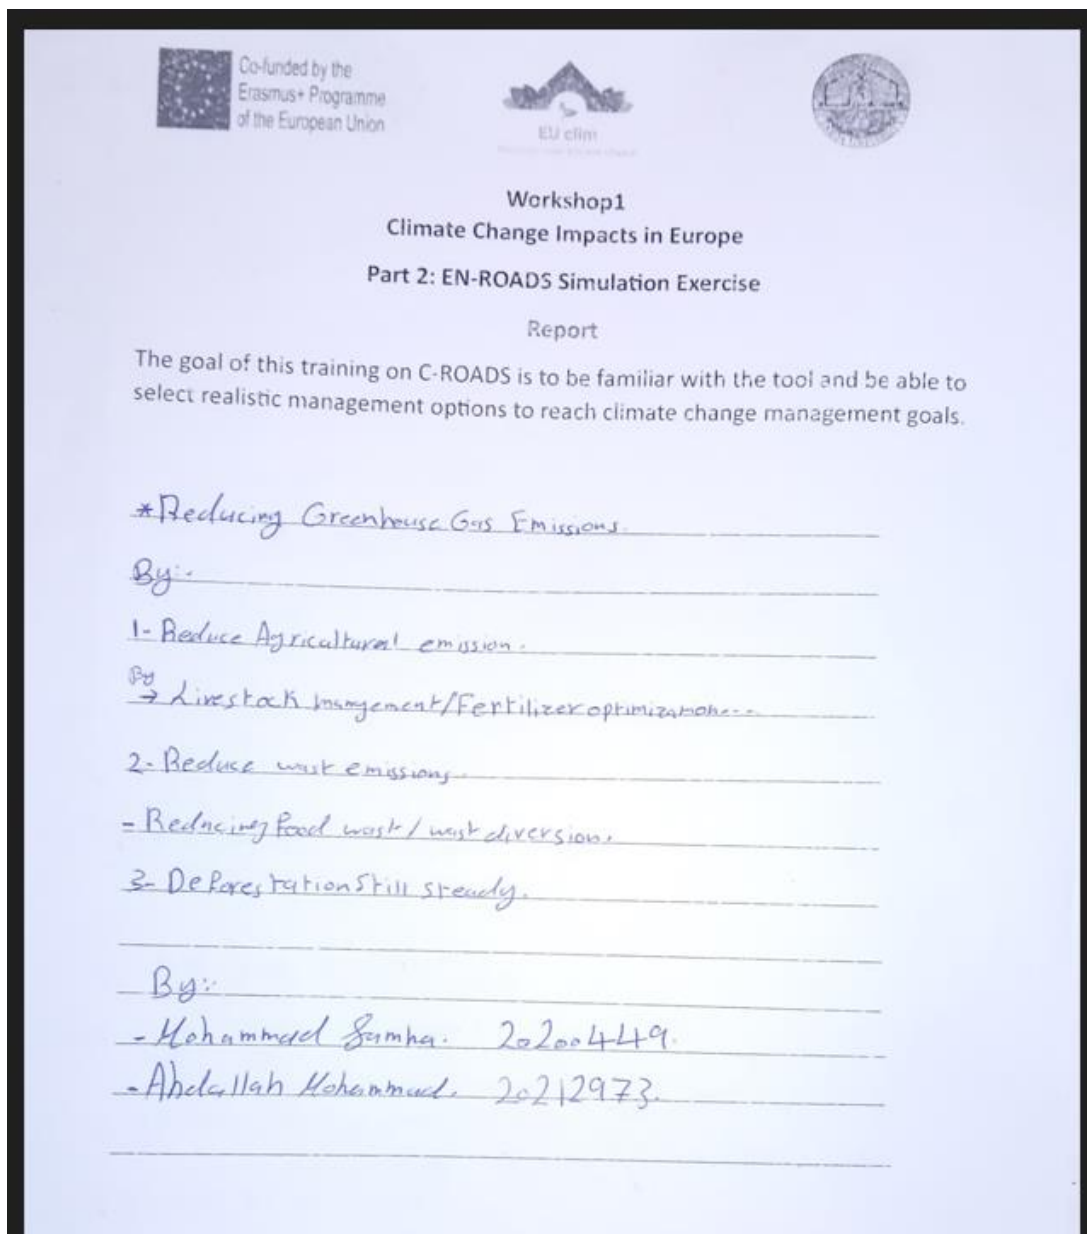 Co-funded by the
Erasmus+ Programme
of the European Union
EU clim
Workshop1
Climate Change Impacts in Europe
Part 2: EN-ROADS Simulation Exercise
Report
The goal of this training on C-ROADS is to be familiar with the tool and be able to
select realistic management options to reach climate change management goals.
*Reducing Greenhouse Gas Emissions.
By:-
1- Reduce Agricultural emission.
By
→ Livestock mangement/Fertilizer optimization---
2- Reduce wast emissions.
- Reducing food wast / wast diversion.
3- Deforestation Still steady.
By:-
- Mohammad 20200449.
- Abdallah Mohammad. 20212973.